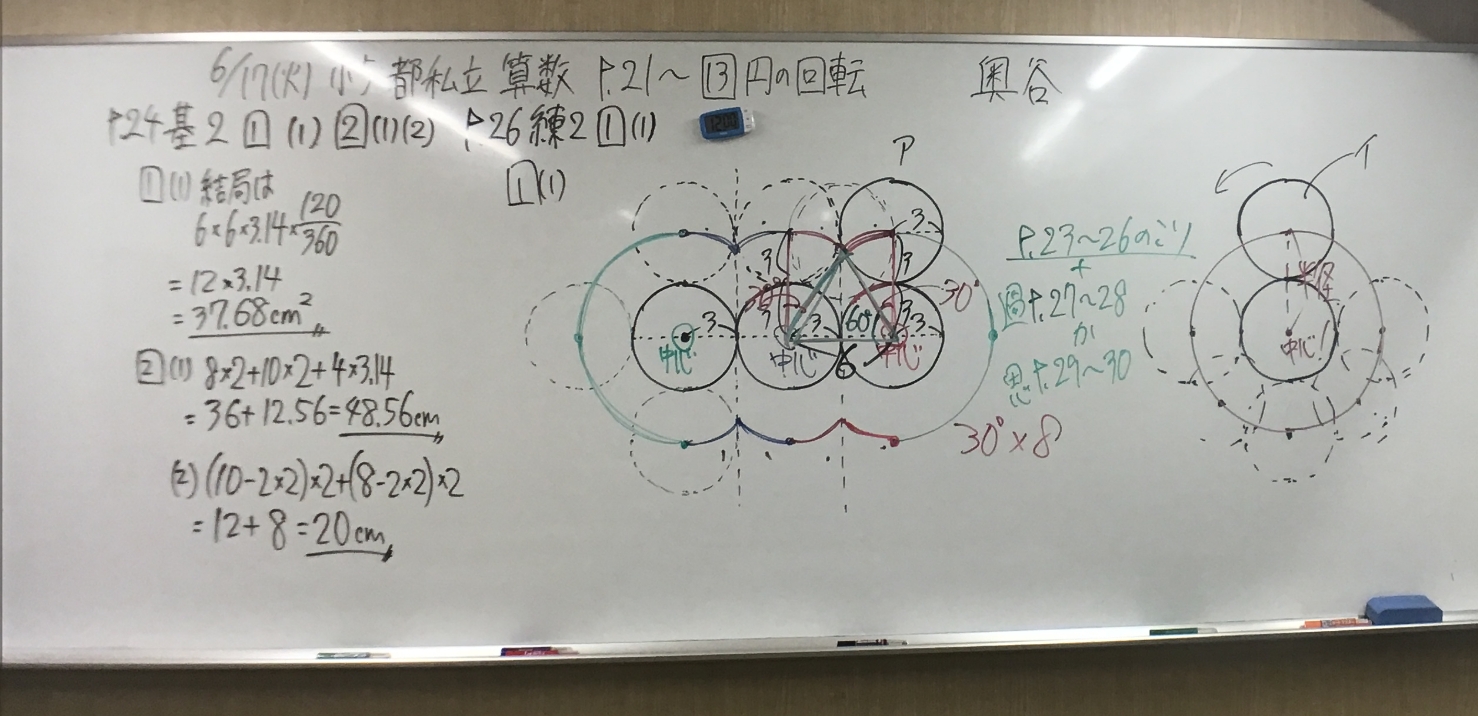 6/17(火) 小6 都私立 算数 P.21〜 13 円の回転 奥谷
P.24 基2 1 (1) 2 (1)(2) P.26 練2 1 (1)
1 (1) 結局は
6×6×3.14×120/360
=12×3.14
=37.68cm²
2 (1) 8×2+10×2+4×3.14
=36+12.56=48.56cm
(2) (10-2×2)×2+(8-2×2)×2
=12+8=20cm
1 (1)
P
3
3
3
3
3
3
3
3
30°
30°
60°
6
中心
中心
中心
30°×8
P.23〜26のこり
+
P.27〜28
か
P.29〜30
イ
半径
中心